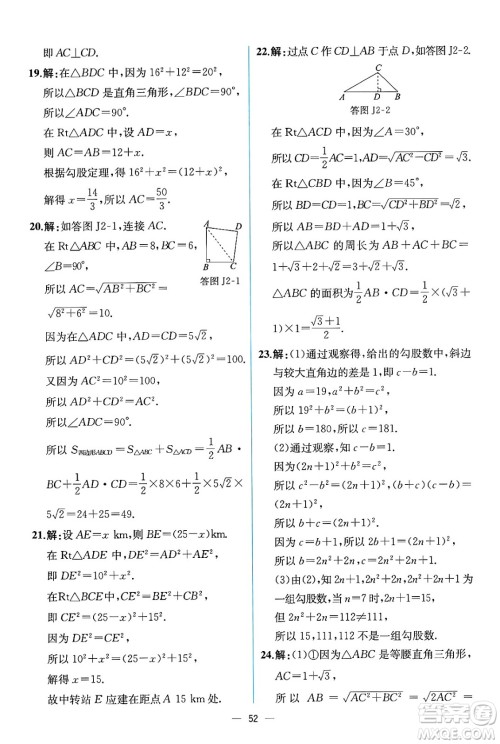 即 AC⊥CD.
19.解:在△BDC 中,因为 16²+12²=20²,
所以△BCD 是直角三角形,∠BDC=90°.
所以∠ADC=90°.
在 Rt△ADC 中,设 AD=x,
所以 AC=AB=12+x.
根据勾股定理,得 16²+x²=(12+x)².
解得 x=14/3,所以 AC=50/3.
20.解:如答图 J2-1,连接 AC.
在 Rt△ABC 中,AB=8,BC=6,
∠B=90°,
所以 AC=√(AB²+BC²)=
√(8²+6²)=10.
答图 J2-1
因为在△ADC 中,AD=CD=5√2,
所以 AD²+CD²=(5√2)²+(5√2)²=100.
又因为 AC²=10²=100,
所以 AD²+CD²=AC².
所以∠ADC=90°.
所以 S四边形ABCD=S△ABC+S△ACD=1/2AB·
BC+1/2AD·CD=1/2×8×6+1/2×5√2×
5√2=24+25=49.
21.解:设 AE=x km,则 BE=(25-x)km.
在 Rt△ADE 中,DE²=AD²+AE²,
即 DE²=10²+x².
在 Rt△BCE 中,CE²=BC²+BE²,
即 CE²=15²+(25-x)².
由题意可知 DE=CE,
所以 10²+x²=15²+(25-x)².
解得 x=15.
故中转站 E 应建在距点 A 15 km处.
22.解:过点 C 作 CD⊥AB 于点 D,如答图 J2-2.
C
A D B
答图 J2-2
在 Rt△ADC 中,因为∠A=30°,AC=2,
所以 CD=1/2AC=1.
所以 AD=√(AC²-CD²)=√3.
在 Rt△CBD 中,因为∠B=45°,
所以 CD=BD=1.
所以 CB=√(CD²+BD²)=√2.
所以 AB=AD+BD=1+√3.
所以△ABC 的周长为 AB+AC+BC=
1+√3+2+√2=3+√3+√2.
△ABC 的面积为1/2AB·CD=1/2×(√3+
1)×1=(√3+1)/2.
23.解:(1)通过观察得,给出的勾股数中,斜边
与较大直角边的差是 1,即 c-b=1.
因为 a=19,a²+b²=c²,
所以 19²+b²=(b+1)².
所以 b=180,所以 c=181.
(2)通过观察,知 c-b=1.
因为(2n+1)²+b²=c²,
所以 c²-b²=(2n+1)².
所以(b+c)(c-b)=(2n+1)².
所以 b+c=(2n+1)².
又 c=b+1,所以 2b+1=(2n+1)².
所以 b=2n²+2n,c=2n²+2n+1.
(3)由(2)知,2n+1,2n²+2n,2n²+2n+1 为
一组勾股数,
当 n=7 时,2n+1=15,112-111=1,
但 2n²+2n=112≠111,
所以 15,111,112 不是一组勾股数.
24.解:(1)①因为△ABC 是等腰直角三角形,
所以 AB=√(AC²+BC²)=√(2AC²)=
52